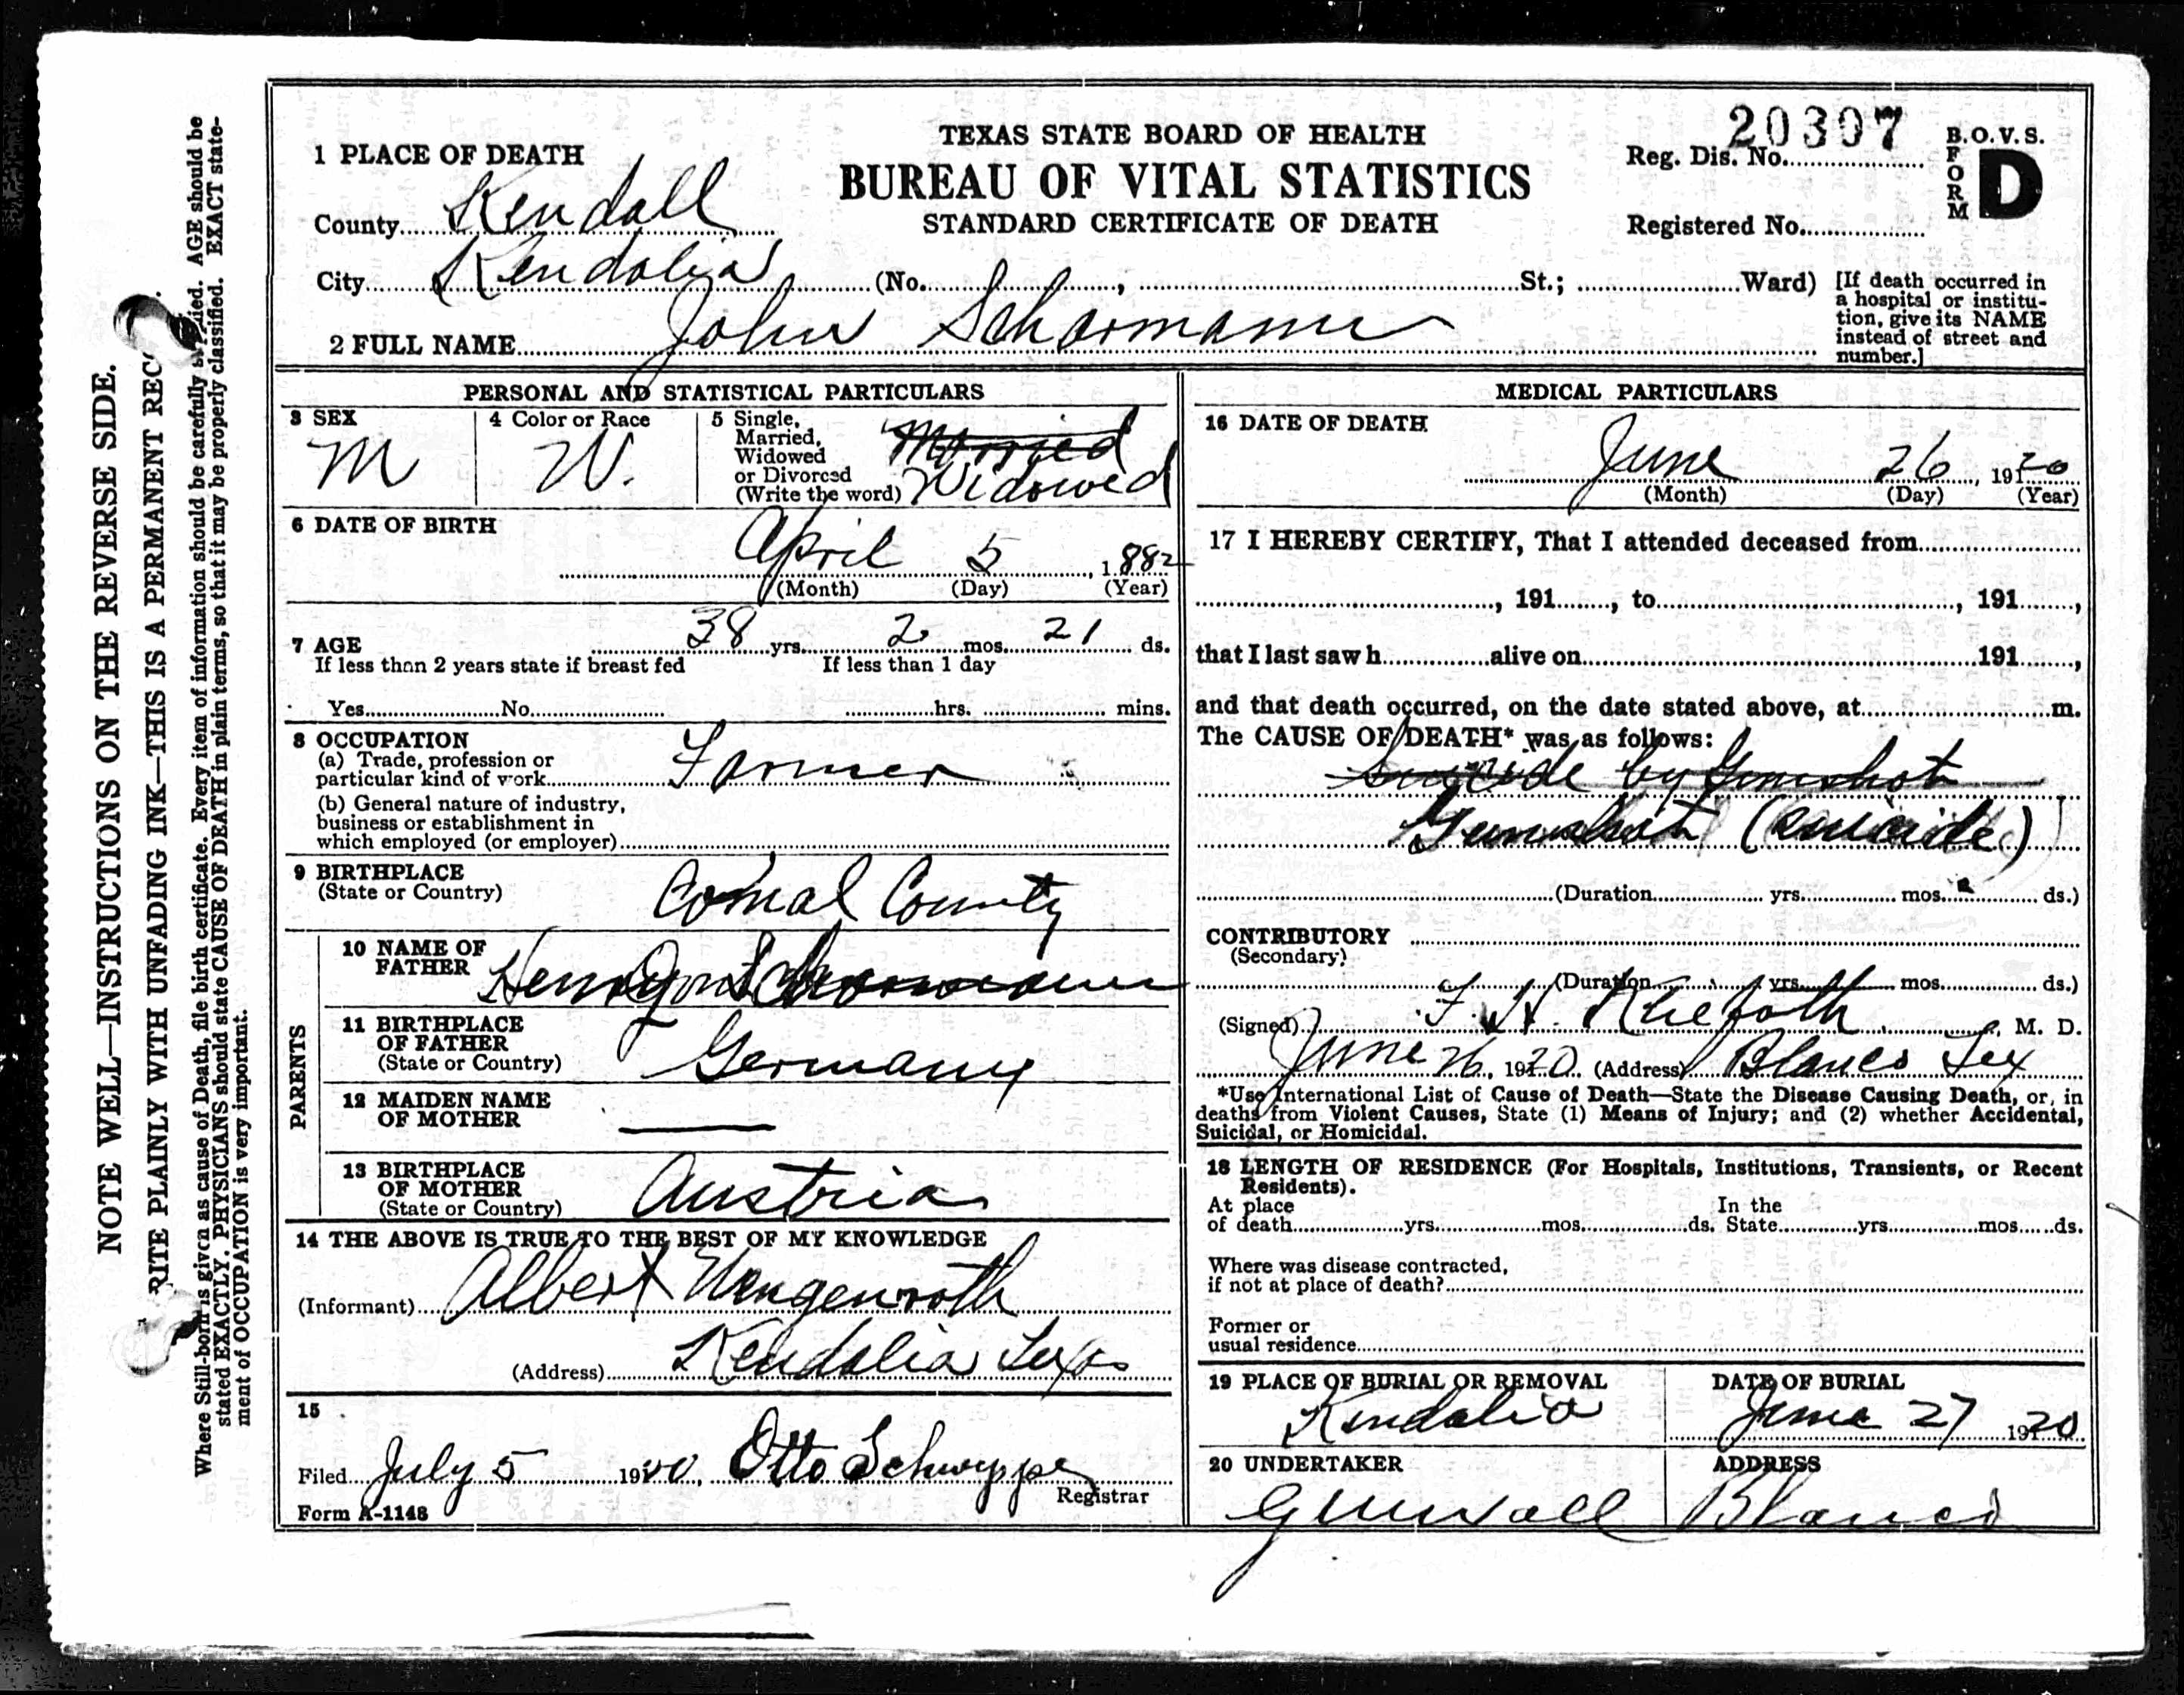 20397
TEXAS STATE BOARD OF HEALTH
BUREAU OF VITAL STATISTICS
STANDARD CERTIFICATE OF DEATH
Reg. Dis. No.
B.O.V.S.
FORM D
Registered No.
1 PLACE OF DEATH
County Kendall
City Kendalia (No. , St.; Ward)
[If death occurred in
a hospital or institu-
tion, give its NAME
instead of street and
number.]
2 FULL NAME John Scharmann
PERSONAL AND STATISTICAL PARTICULARS
3 SEX
M
4 Color or Race
W.
5 Single,
Married,
Widowed
or Divorced
(Write the word)
Married
Widowed
6 DATE OF BIRTH
April 5, 1882
(Month) (Day) (Year)
7 AGE 38 yrs. 2 mos. 21 ds.
If less than 2 years state if breast fed If less than 1 day
Yes No hrs. mins.
8 OCCUPATION
(a) Trade, profession or
particular kind of work Farmer
(b) General nature of industry,
business or establishment in
which employed (or employer)
9 BIRTHPLACE
(State or Country) Comal County
PARENTS
10 NAME OF
FATHER Scharmann
11 BIRTHPLACE
OF FATHER
(State or Country) Germany
12 MAIDEN NAME
OF MOTHER
13 BIRTHPLACE
OF MOTHER
(State or Country) Austria
14 THE ABOVE IS TRUE TO THE BEST OF MY KNOWLEDGE
(Informant) Albert Wengenroth
(Address) Kendalia Texas
15
Filed July 5 1920, Otto Schweppe
Registrar
Form A-1148
MEDICAL PARTICULARS
16 DATE OF DEATH
June 26, 1920
(Month) (Day) (Year)
17 I HEREBY CERTIFY, That I attended deceased from
, 191 , to , 191 ,
that I last saw h alive on 191 ,
and that death occurred, on the date stated above, at m.
The CAUSE OF DEATH* was as follows:
Suicide by Gunshot
Gunshot (suicide)
(Duration yrs. mos. ds.)
CONTRIBUTORY
(Secondary)
(Duration yrs. mos. ds.)
(Signed) F. H. M. D.
June 26, 1920 (Address) Blanco Tex
*Use International List of Cause of Death—State the Disease Causing Death, or, in
deaths from Violent Causes, State (1) Means of Injury; and (2) whether Accidental,
Suicidal, or Homicidal.
18 LENGTH OF RESIDENCE (For Hospitals, Institutions, Transients, or Recent
Residents).
At place In the
of death yrs. mos. ds. State yrs. mos. ds.
Where was disease contracted,
if not at place of death?
Former or
usual residence
19 PLACE OF BURIAL OR REMOVAL
Kendalia
DATE OF BURIAL
June 27 1920
20 UNDERTAKER
ADDRESS
Blanco
NOTE WELL—INSTRUCTIONS ON THE REVERSE SIDE.
RITE PLAINLY WITH UNFADING INK—THIS IS A PERMANENT REC
Where Still-born is given as cause of Death, file birth certificate. Every item of information should be carefully supplied. AGE should be
stated EXACTLY. PHYSICIANS should state CAUSE OF DEATH in plain terms, so that it may be properly classified. EXACT state-
ment of OCCUPATION is very important.